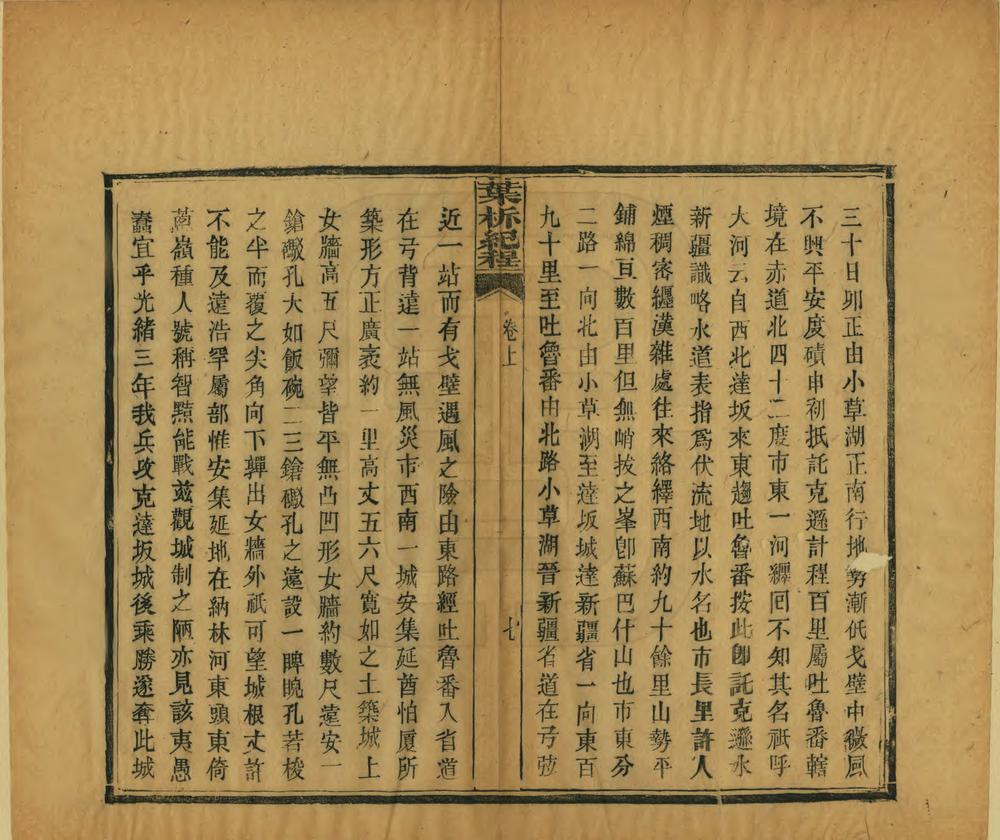 三十日卯正由小草湖正南行地勢漸低戈壁中微風
不興平安度磧申初抵託克遜計程百里屬吐魯番轄
境在赤道北四十二度市東一河纏囘不知其名祇呼
大河云自西北達坂來東趨吐魯番按此卽託克遜水
新疆識略水道表指爲伏流地以水名也市長里許人
煙稠密纏漢雜處往來絡繹西南約九十餘里山勢平
鋪綿亘數百里但無峭拔之峯卽蘇巴什山也市東分
二路一向北由小草湖至達坂城達新疆省一向東百
九十里至吐魯番由北路小草湖晉新疆省道在弓弦
葉柝紀程
卷上
七
近一站而有戈壁遇風之險由東路經吐魯番入省道
在弓背遠一站無風災市西南一城安集延酋怕厦所
築形方正廣袤約一里高丈五六尺寬如之土築城上
女牆高五尺彌望皆平無凸凹形女牆約數尺遠安一
鎗礮孔大如飯碗二三鎗礮孔之遠設一睥睨孔若梭
之半而覆之尖角向下嚲出女牆外祇可望城根丈許
不能及遠浩罕屬部惟安集延地在納林河東頭東倚
蔥嶺種人號稱智黠能戰茲觀城制之陋亦見該夷愚
蠢宜乎光緒三年我兵攻克達坂城後乘勝遂奪此城